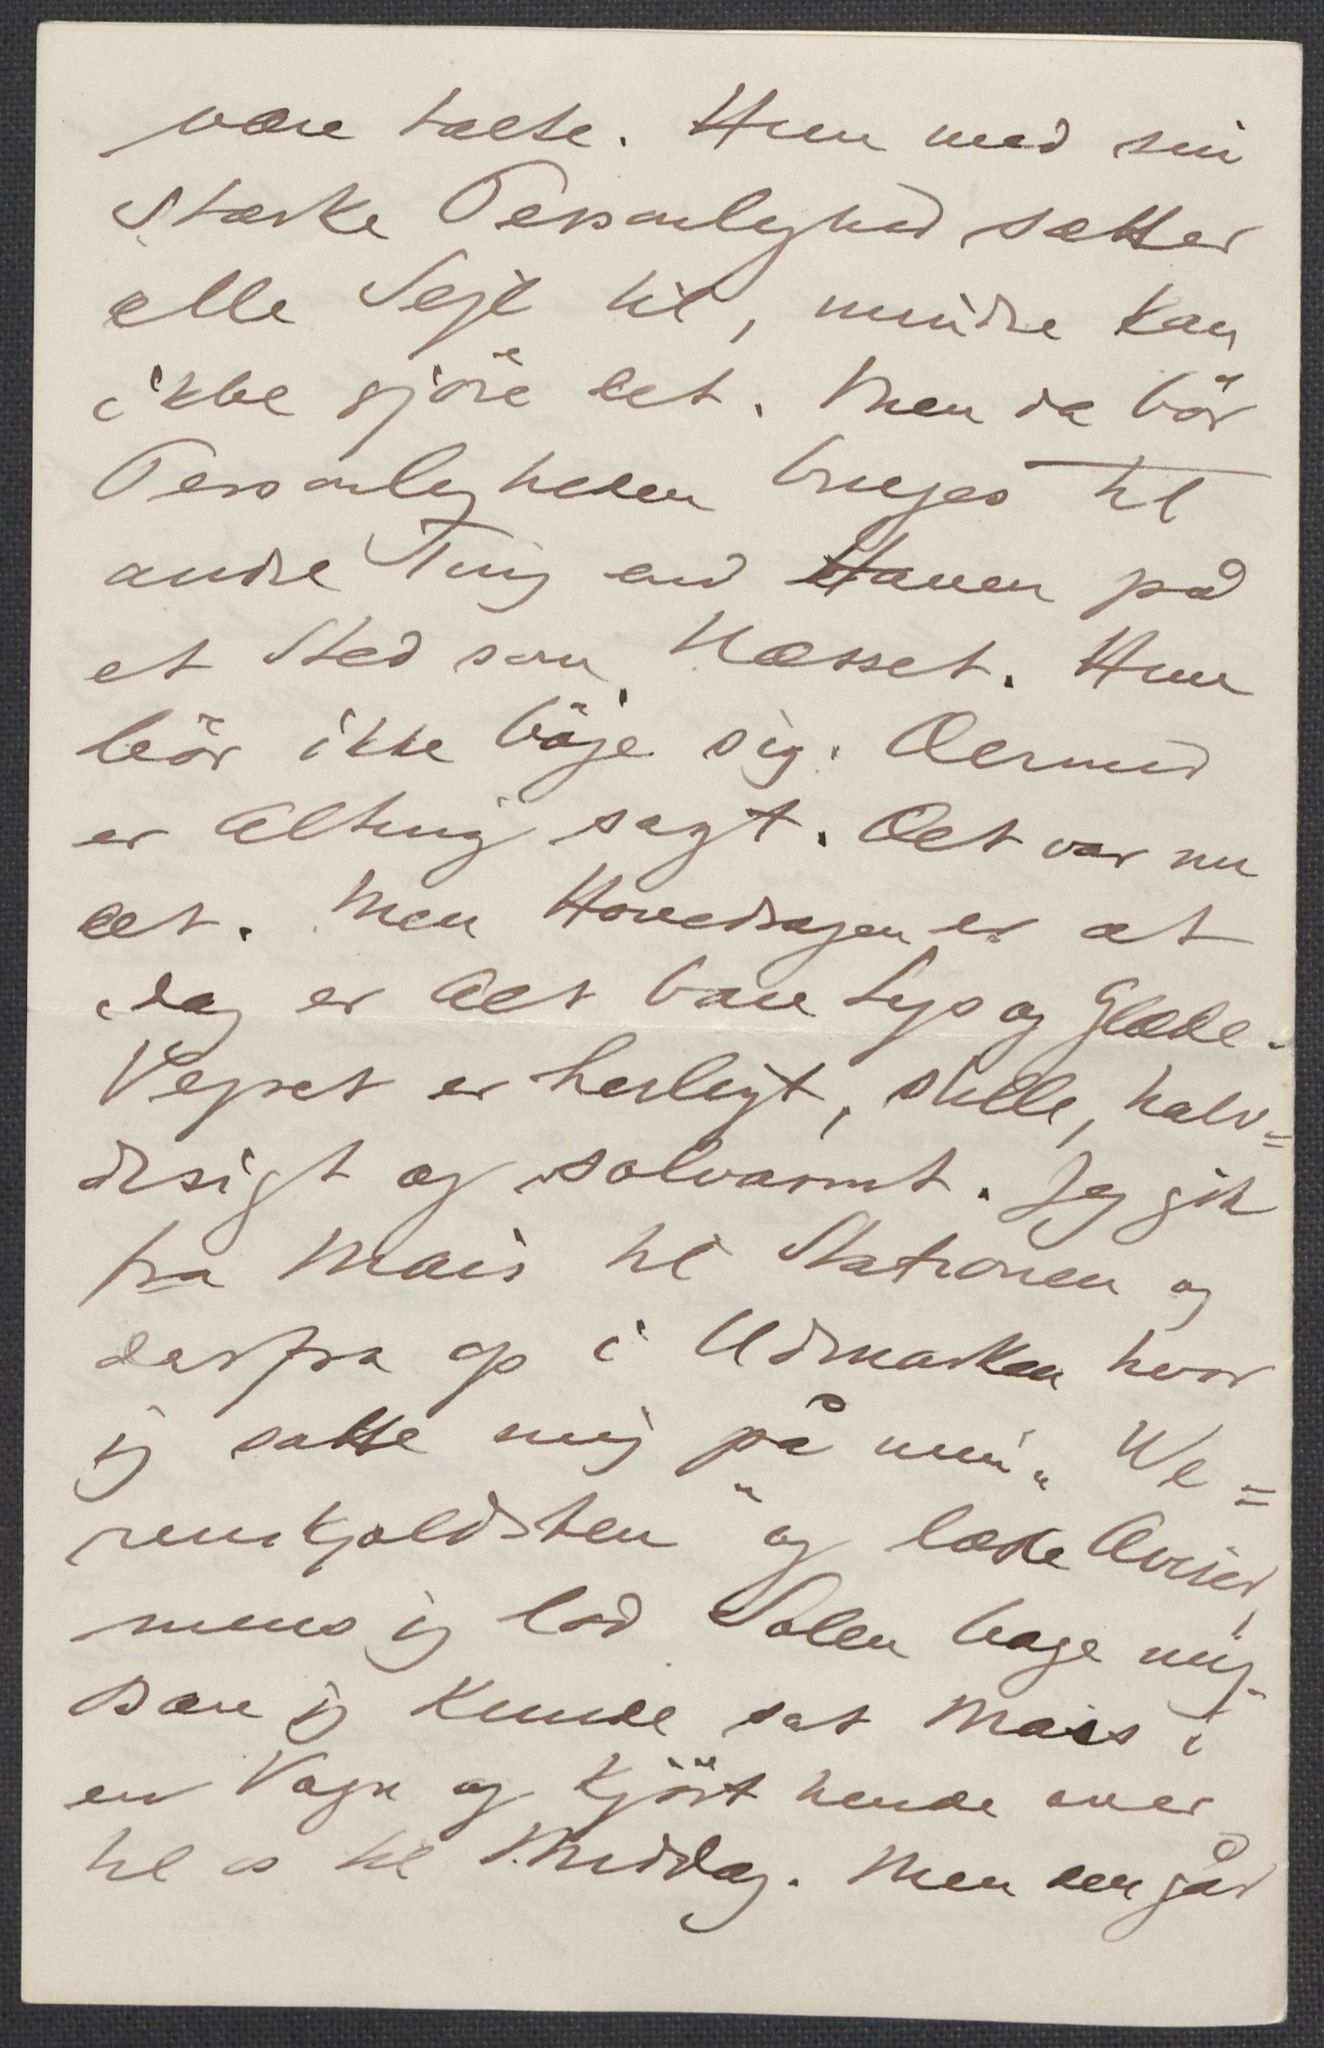 være Laele. Hun med sin
stærke Personlighed sætter
alle Sejl til, mindre kan
ikke gjöre det. Men da bör
Personligheden bruges til
andre Ting end Haven på
et Sted som Næsset. Hun
bör ikke böje sig. Dermed
er Alting sagt. Det var nu
det. Men Hovedsagen er at
idag er Alt bare Lys og Glæde.
Vejret er herligt, stille, halv=
disigt og solvarmt. Jeg gik
fra Mais til Stationen og
derfra op i Udmarken hvor
jeg satte mig på min „We=
renskjoldsten" og læste Aviser,
mens jeg lod Solen bage mig.
Bare jeg kunde sat Mais i
en Vogn og kjört hende over
til os til Middag. Men den går